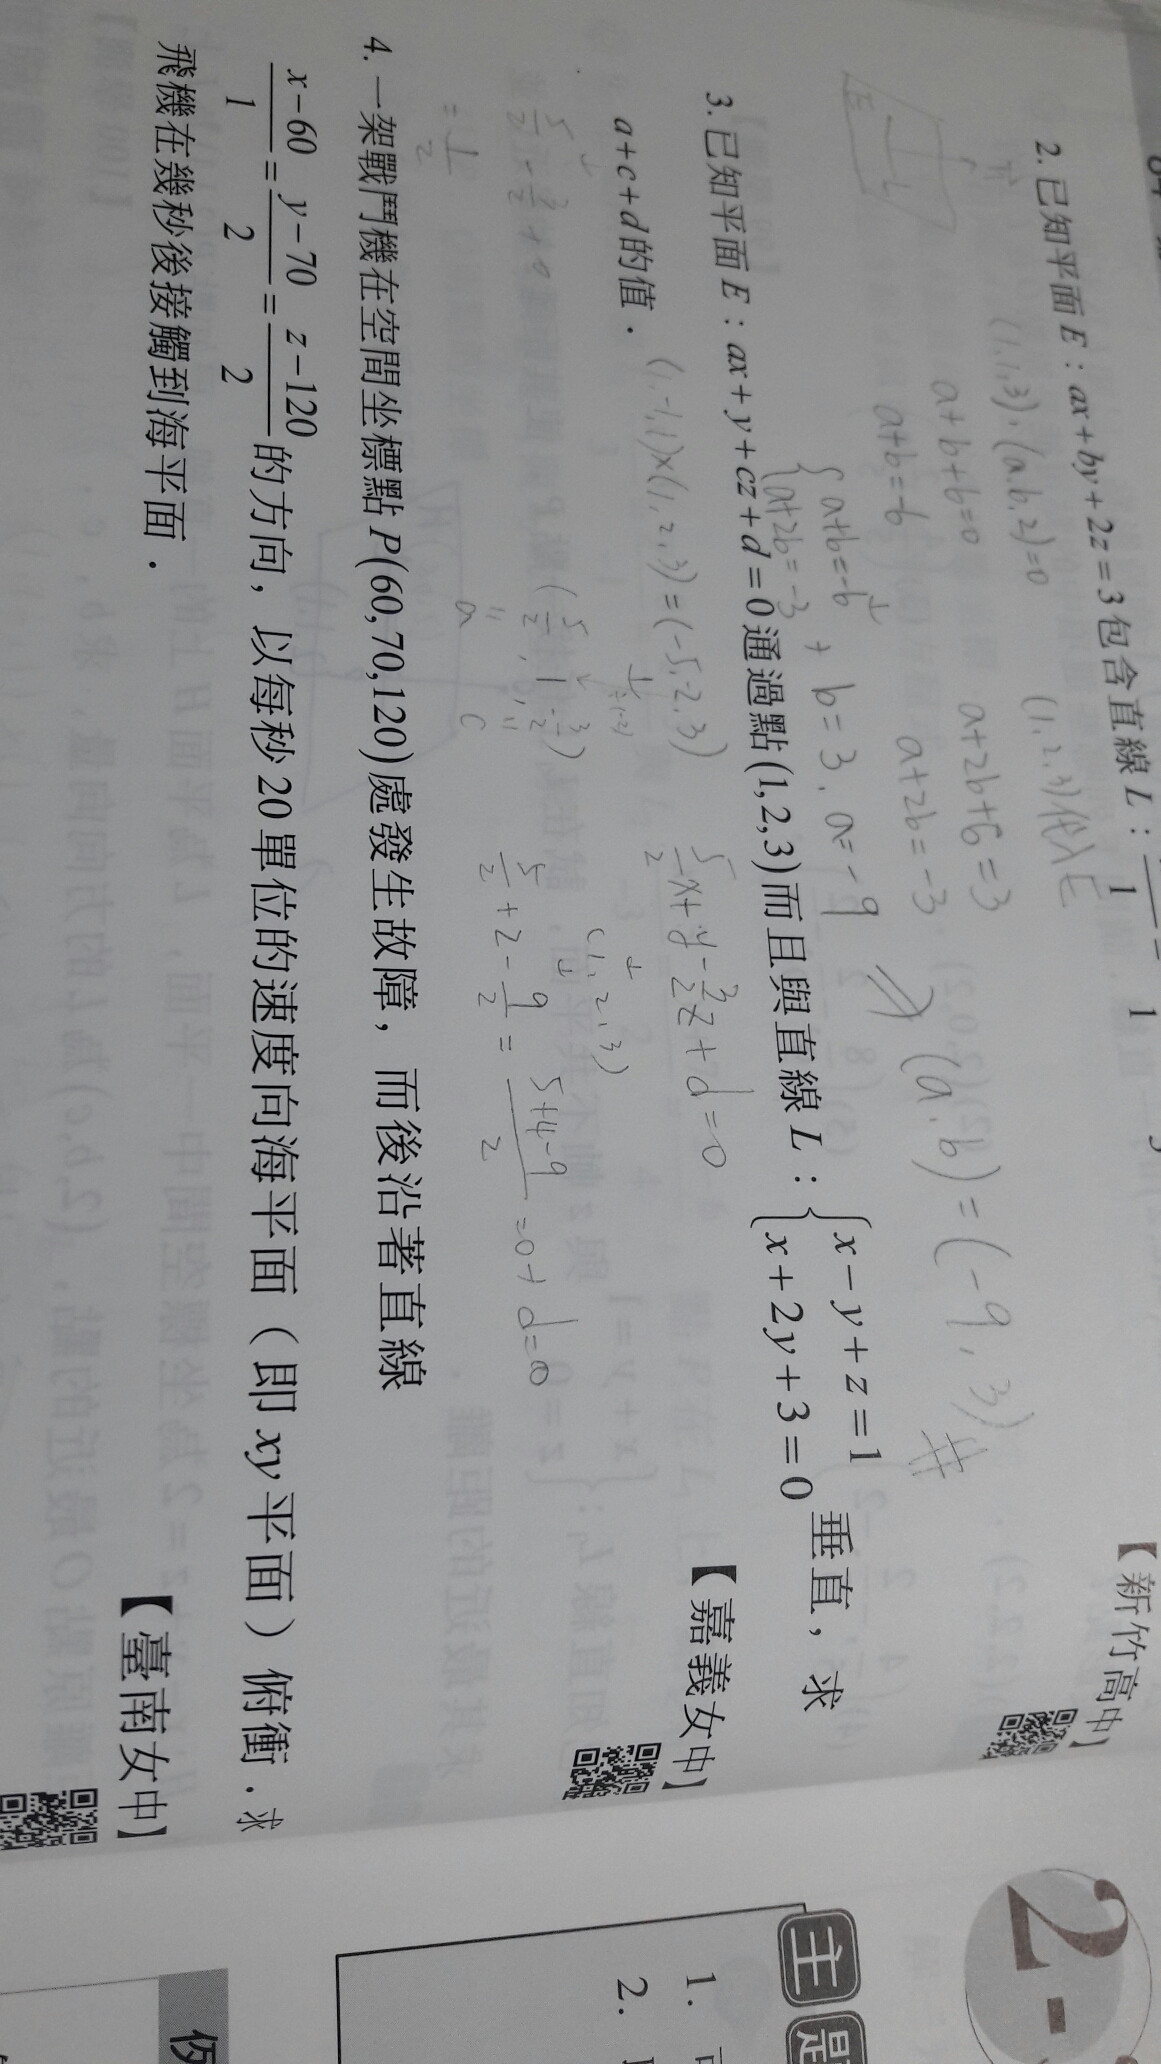 2. 已知平面 E：ax+by+2z=3 包含直線 L：
【新竹高中】
(1,1,3)·(a,b,2)=0
(1,2,3)代入E
a+b+6=0
a+2b+6=3
a+b=-6
a+2b=-3
{a+b=-6
{a+2b=-3
b=3, a=-9
(a,b)=(-9,3)#
3. 已知平面 E：ax+y+cz+d=0 通過點(1,2,3)而且與直線 L：{x-y+z=1
{x+2y+3=0 垂直，求
a+c+d的值．
【嘉義女中】
(1,-1,1)×(1,2,3)=(-5,-2,3)
(5/2, 1, -3/2)
a
c
5/2x+y-3/2z+d=0
(1,2,3)
5/2+2-9/2=(5+4-9)/2=0+d=0
=1/2
4. 一架戰鬥機在空間坐標點 P(60,70,120)處發生故障，而後沿著直線
(x-60)/1=(y-70)/2=(z-120)/2 的方向，以每秒20單位的速度向海平面（即xy平面）俯衝．求
飛機在幾秒後接觸到海平面．
【臺南女中】
2-
主
1.
2.
例